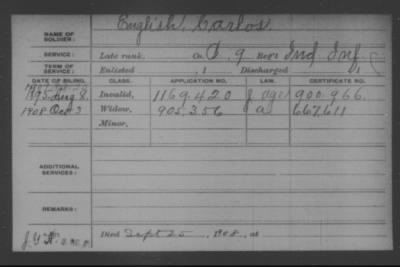 NAME OF SOLDIER: English, Carlos
SERVICE: Late rank, Co. D. 9 Reg't Ind. Inf.
TERM OF SERVICE: Enlisted , 1 Discharged , 1
DATE OF FILING. CLASS. APPLICATION NO. CERTIFICATE NO.
1895 Aug 8. Invalid, 1169.420 900.966.
1908 Oct 3 Widow, 905.356 a 667,611
Minor,
ADDITIONAL SERVICES:
REMARKS:
Died Sept 25, 1908, at